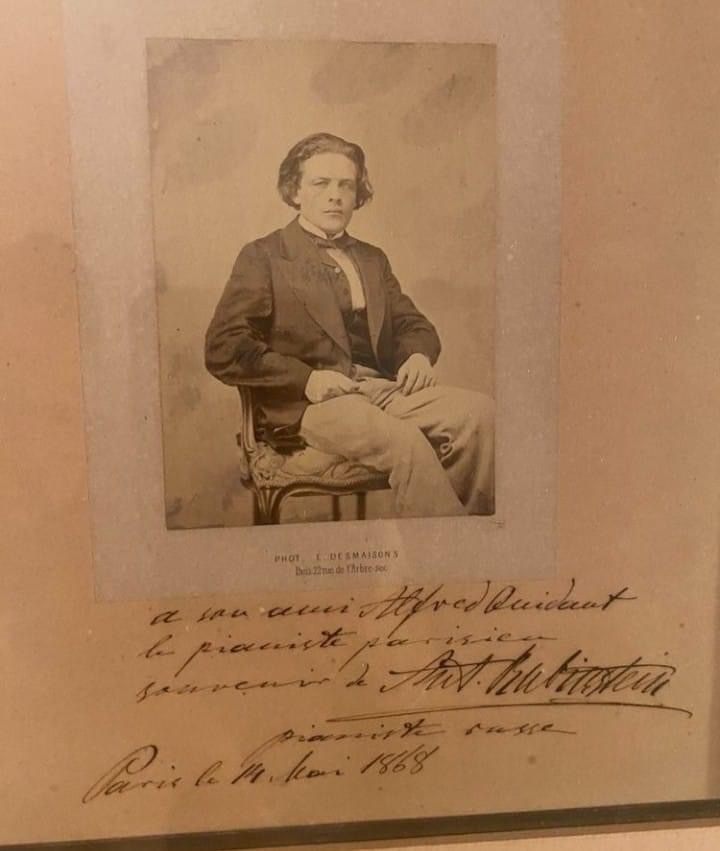 PHOT. E. DESMAISONS
Paris, 22 rue de l'Arbre-sec
a son ami Alfred Quidant
le pianiste parisien
souvenir de Ant. Rubinstein
pianiste russe
Paris le 14. Mai 1868